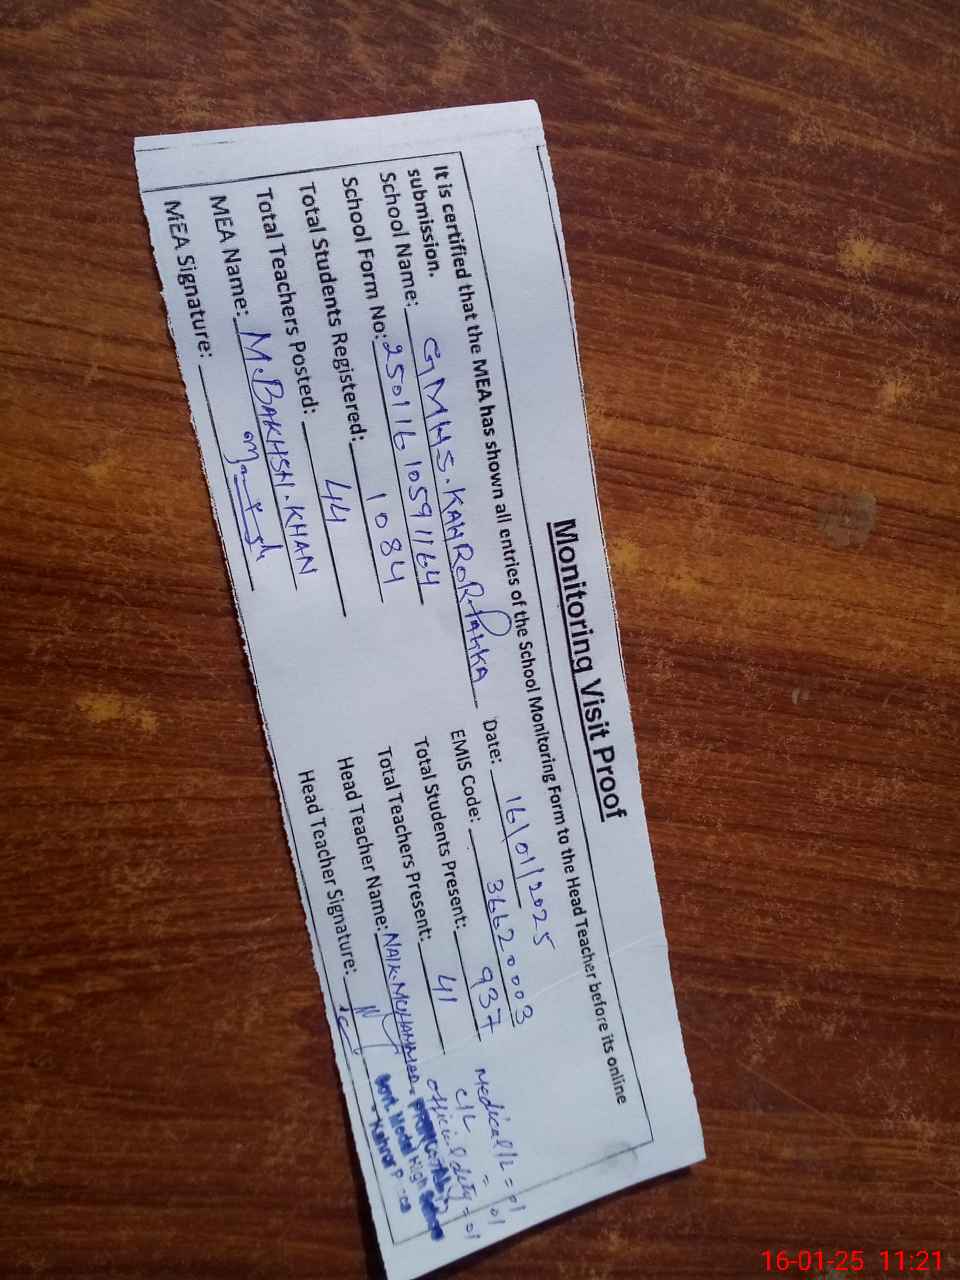 Monitoring Visit Proof
It is certified that the MEA has shown all entries of the School Monitoring Form to the Head Teacher before its online
submission.
School Name: GMHS. KAHROR. PAKKA Date: 16/01/2025
School Form No: 25011610591164 EMIS Code: 36620003
Total Students Registered: 1084 Total Students Present: 937
Total Teachers Posted: 44 Total Teachers Present: 41
MEA Name: M. BAKHSH. KHAN Head Teacher Name: NAIK. MUHAMMAD.
MEA Signature: Head Teacher Signature:
Medical/L = 01
C/L = 01
official duty = 01
Govt. Model High
Kahror
16-01-25 11:21